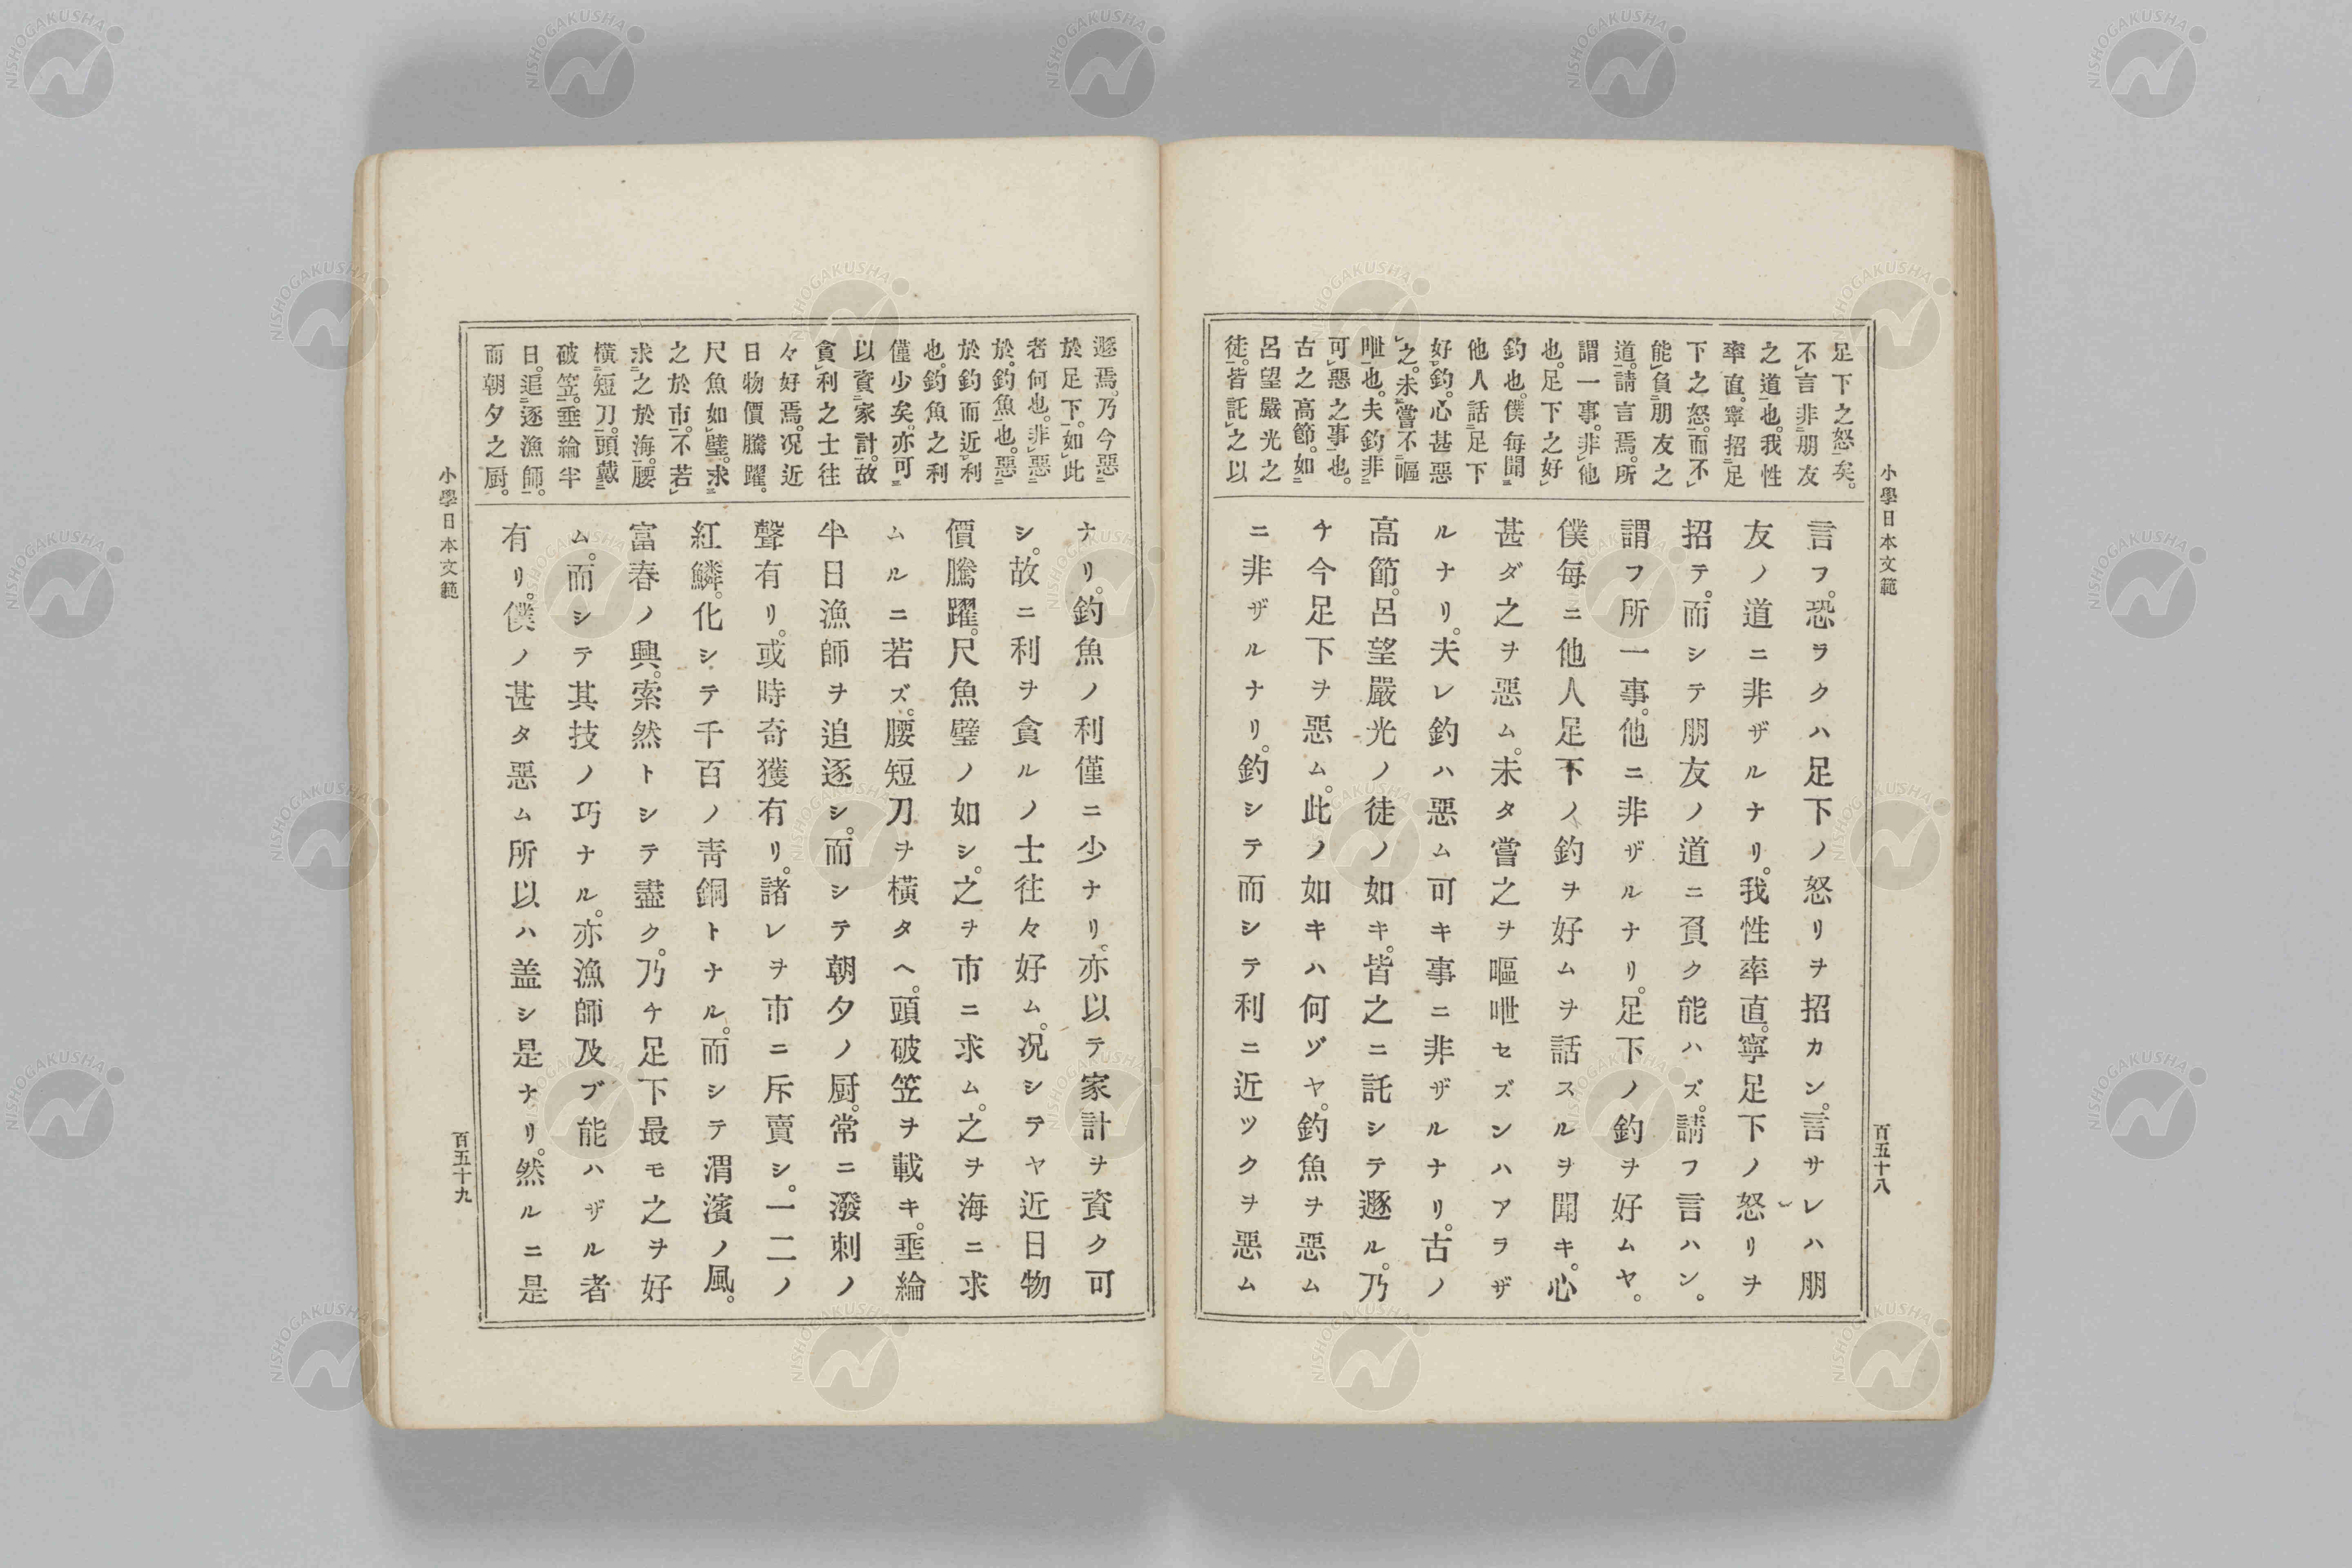 小學日本文範
百五十八
足下之怒矣。
不言非朋友
之道也。我性
率直。寧招足
下之怒。而不
能負朋友之
道。請言焉。所
謂一事。非他
也。足下之好
釣也。僕每聞
他人話足下
好釣。心甚惡
之。未嘗不嘔
呭也。夫釣非
可惡之事也。
古之高節。如
呂望嚴光之
徒。皆託之以
言フ。恐ラクハ足下ノ怒リヲ招カン。言サレハ朋
友ノ道ニ非ザルナリ。我性率直。寧足下ノ怒リヲ
招テ。而シテ朋友ノ道ニ負ク能ハズ。請フ言ハン。
謂フ所一事。他ニ非ザルナリ。足下ノ釣ヲ好ムヤ。
僕每ニ他人足下ノ釣ヲ好ムヲ話スルヲ聞キ。心
甚ダ之ヲ惡ム。未タ嘗之ヲ嘔呭セズンハアラザ
ルナリ。夫レ釣ハ惡ム可キ事ニ非ザルナリ。古ノ
高節。呂望嚴光ノ徒ノ如キ。皆之ニ託シテ遯ル。乃
チ今足下ヲ惡ム。此ノ如キハ何ゾヤ。釣魚ヲ惡ム
ニ非ザルナリ。釣シテ而シテ利ニ近ツクヲ惡ム
遯焉。乃今惡
於足下。如此
者何也。非惡
於釣魚也。惡
於釣而近利
也。釣魚之利
僅少矣。亦可
以資家計。故
貪利之士往
々好焉。況近
日物價騰躍。
尺魚如璧。求
之於市。不若
求之於海。腰
橫短刀。頭戴
破笠。垂綸半
日。追逐漁師。
而朝夕之厨。
ナリ。釣魚ノ利僅ニ少ナリ。亦以テ家計ヲ資ク可
シ。故ニ利ヲ貪ルノ士往々好ム。況シテヤ近日物
價騰躍。尺魚璧ノ如シ。之ヲ市ニ求ム。之ヲ海ニ求
ムルニ若ズ。腰短刀ヲ橫タヘ。頭破笠ヲ載キ。垂綸
半日漁師ヲ追逐シ。而シテ朝夕ノ厨。常ニ潑刺ノ
聲有リ。或時奇獲有リ。諸レヲ市ニ斥賣シ。一二ノ
紅鱗。化シテ千百ノ靑銅トナル。而シテ渭濱ノ風。
富春ノ興。索然トシテ盡ク。乃チ足下最モ之ヲ好
ム。而シテ其技ノ巧ナル。亦漁師及ブ能ハザル者
有リ。僕ノ甚タ惡ム所以ハ盖シ是ナリ。然ルニ是
小學日本文範
百五十九